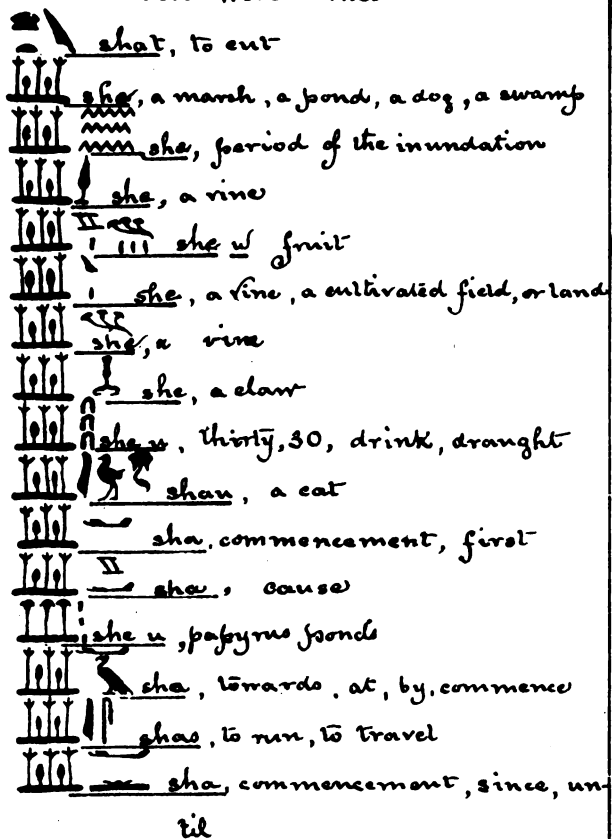 shat, to cut
she, a marsh, a pond, a dog, a swamp
she, period of the inundation
she, a vine
she w fruit
she, a vine, a cultivated field, or land
she, a vine
she, a claw
she u, thirty, 30, drink, draught
shau, a cat
sha, commencement, first
sha, cause
she u, papyrus ponds
sha, towards, at, by, commence
shas, to run, to travel
sha, commencement, since, un-
til